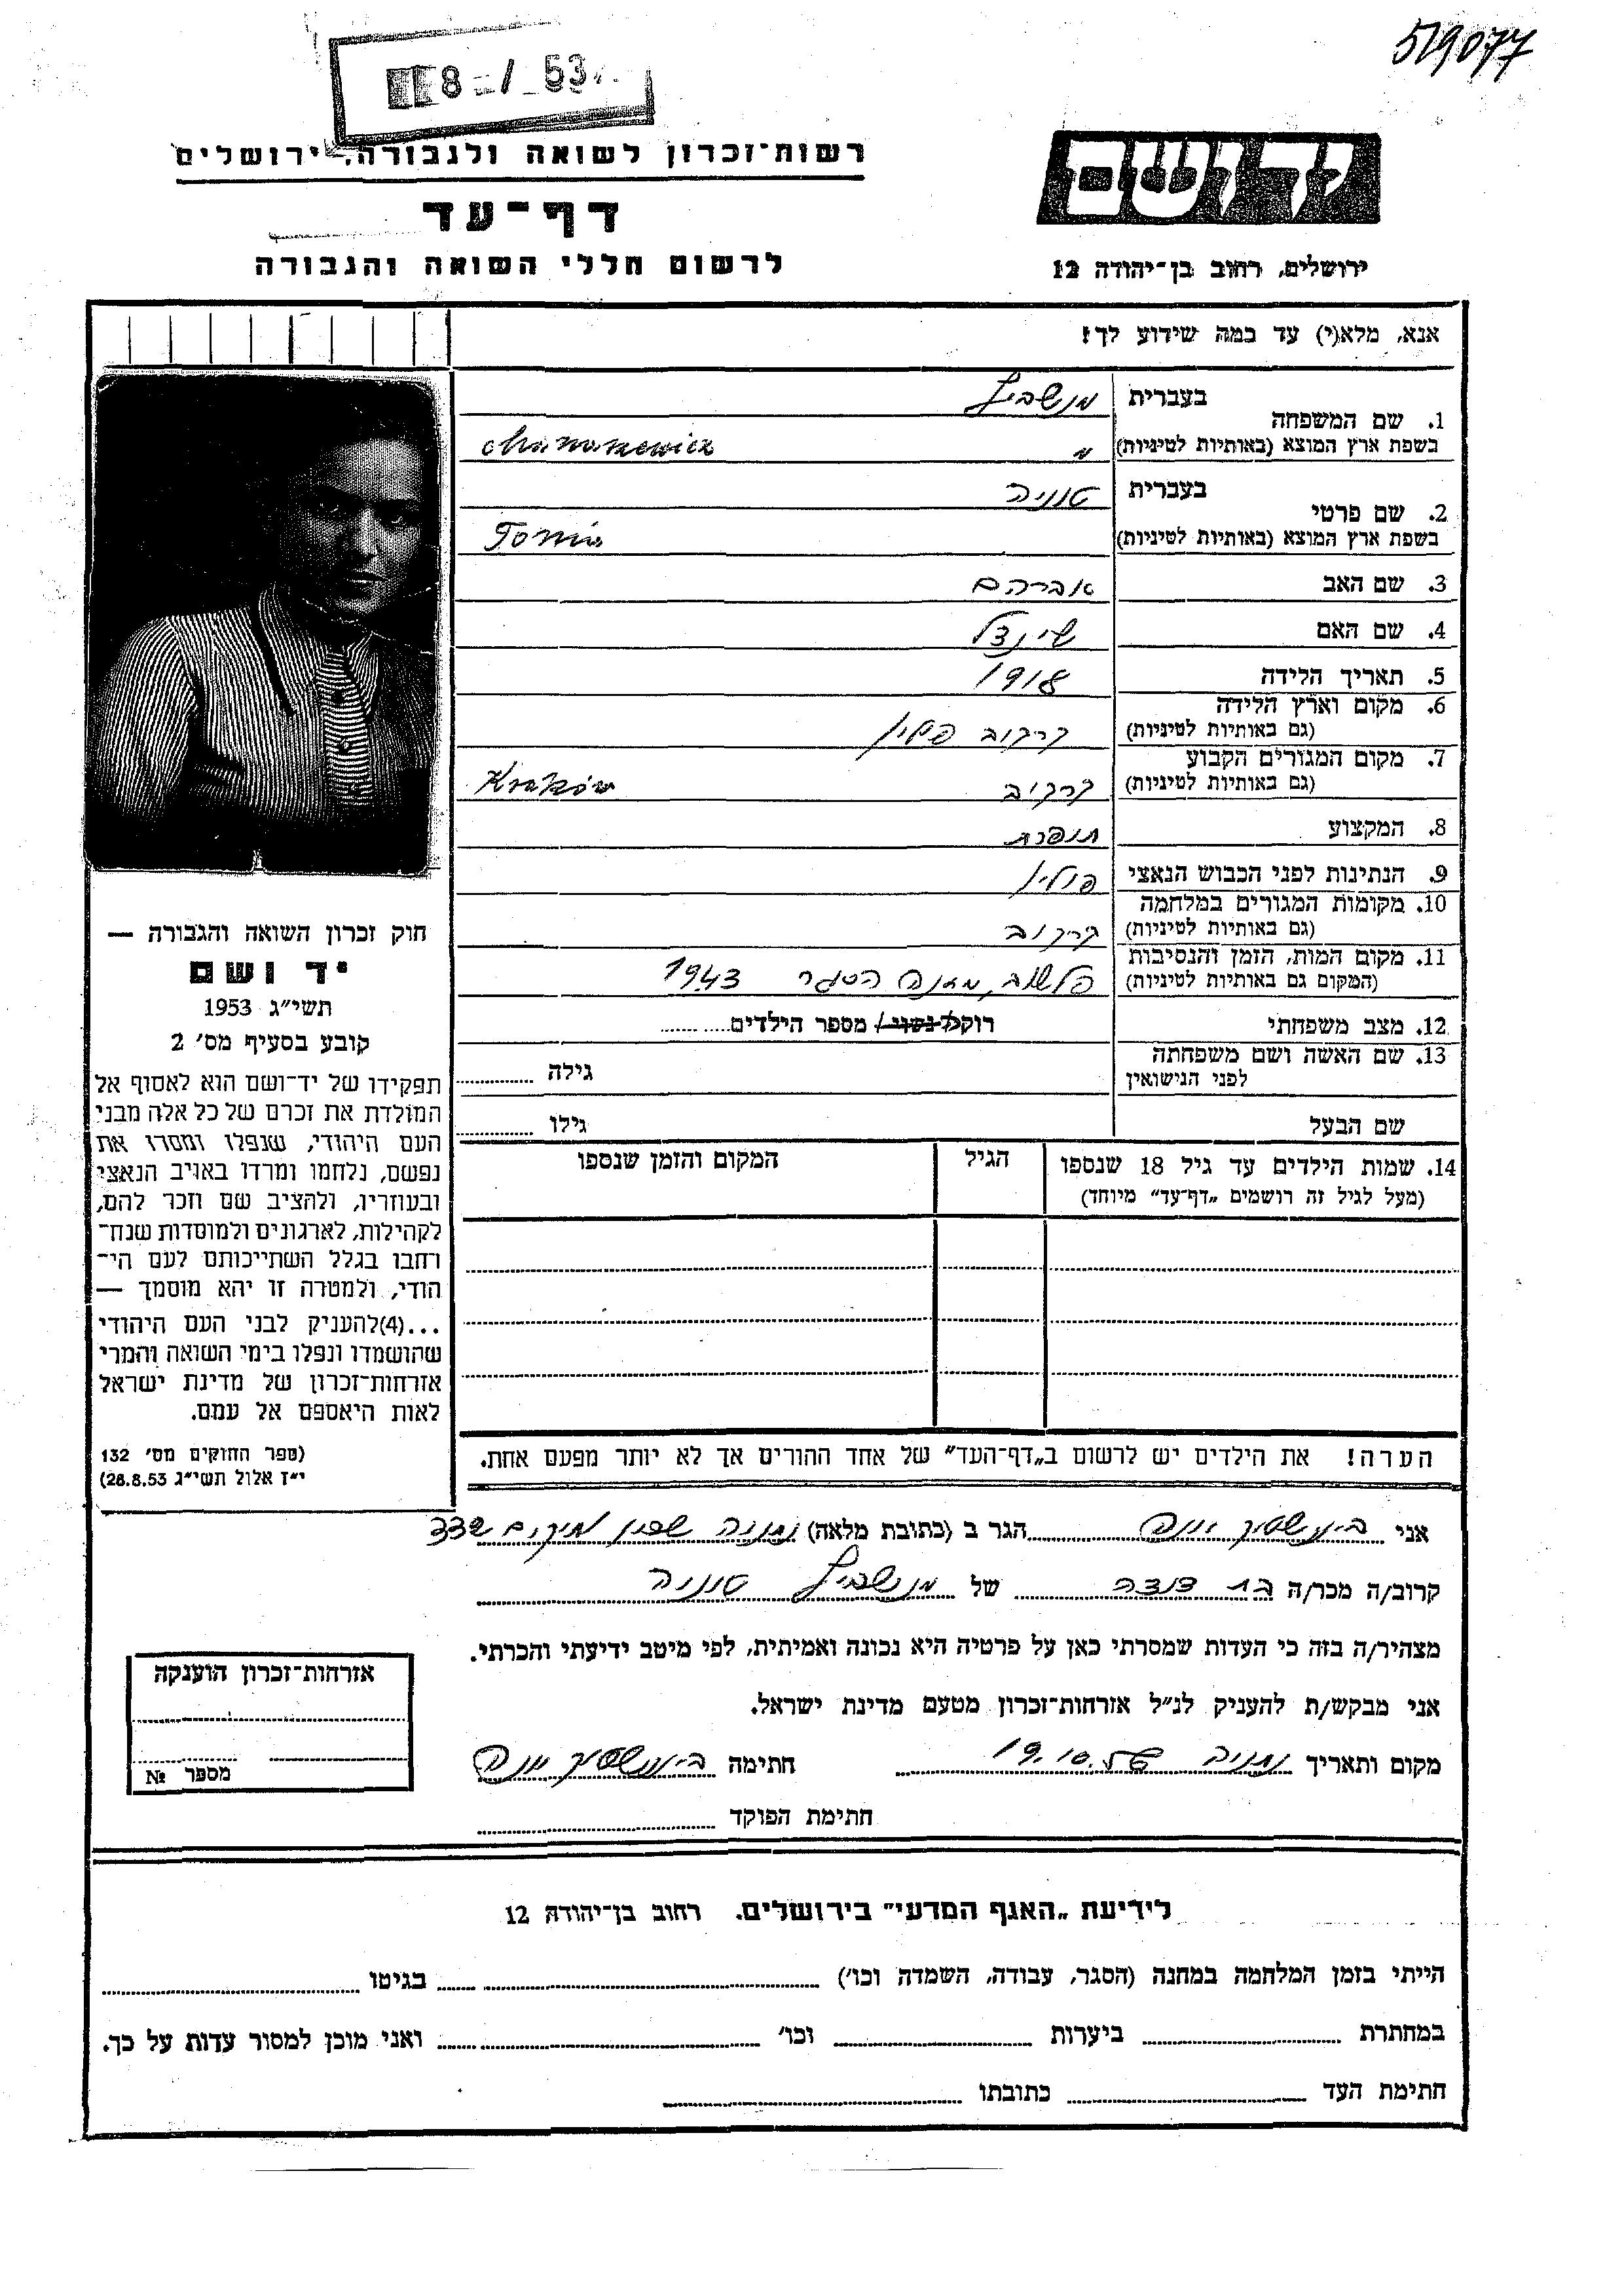 519077
8-1 53
רשות־זכרון לשואה ולגבורה, ירושלים
דף־עד
לרשום חללי השואה והגבורה
יד ושם
ירושלים, רחוב בן־יהודה 12
אנא, מלא(י) עד כמה שידוע לך!
1. שם המשפחה בעברית
בשפת ארץ המוצא (באותיות לטיניות)
2. שם פרטי בעברית טוניה
בשפת ארץ המוצא (באותיות לטיניות) Tonia
3. שם האב אברהם
4. שם האם שינדל
5. תאריך הלידה 1918
6. מקום וארץ הלידה קרקוב פולין
(גם באותיות לטיניות)
7. מקום המגורים הקבוע
(גם באותיות לטיניות) קרקוב Kraków
8. המקצוע תופרת
9. הנתינות לפני הכבוש הנאצי פולין
10. מקומות המגורים במלחמה
(גם באותיות לטיניות) קרקוב
11. מקום המות, הזמן והנסיבות
(המקום גם באותיות לטיניות) פלשוב, מחנה הסגר 1943
12. מצב משפחתי רוק/ה נשוי/ מספר הילדים
13. שם האשה ושם משפחתה
לפני הנישואין גילה
שם הבעל גילו
14. שמות הילדים עד גיל 18 שנספו הגיל המקום והזמן שנספו
(מעל לגיל זה רושמים „דף־עד" מיוחד)
הערה! את הילדים יש לרשום ב„דף־העד" של אחד ההורים אך לא יותר מפעם אחת.
חוק זכרון השואה והגבורה —
יד ושם
תשי״ג 1953
קובע בסעיף מס׳ 2
תפקידו של יד־ושם הוא לאסוף אל
המולדת את זכרם של כל אלה מבני
העם היהודי, שנפלו ומסרו את
נפשם, נלחמו ומרדו באויב הנאצי
ובעוזריו, ולהציב שם וזכר להם,
לקהילות, לארגונים ולמוסדות שנח־
רחבו בגלל השתייכותם לעם הי־
הודי, ולמטרה זו יהא מוסמך —
...(4)להעניק לבני העם היהודי
שהושמדו ונפלו בימי השואה והמרי
אזרחות־זכרון של מדינת ישראל
לאות היאספם אל עמם.
(ספר החוקים מס׳ 132
י״ז אלול תשי״ג 28.8.53)
אני יונה הגר ב (כתובת מלאה) נתניה שכון ותיקים 332
קרוב/ה מכר/ה בת דודה של טוניה
מצהיר/ה בזה כי העדות שמסרתי כאן על פרטיה היא נכונה ואמיתית, לפי מיטב ידיעתי והכרתי.
אני מבקש/ת להעניק לנ״ל אזרחות־זכרון מטעם מדינת ישראל.
מקום ותאריך נתניה 19.10.56 חתימה יונה
חתימת הפוקד
אזרחות־זכרון הוענקה
מספר №
לידיעת „האגף המדעי" בירושלים. רחוב בן־יהודה 12
הייתי בזמן המלחמה במחנה (הסגר, עבודה, השמדה וכו׳) בגיטו
במחתרת ביערות וכו׳ ואני מוכן למסור עדות על כך.
חתימת העד כתובתו